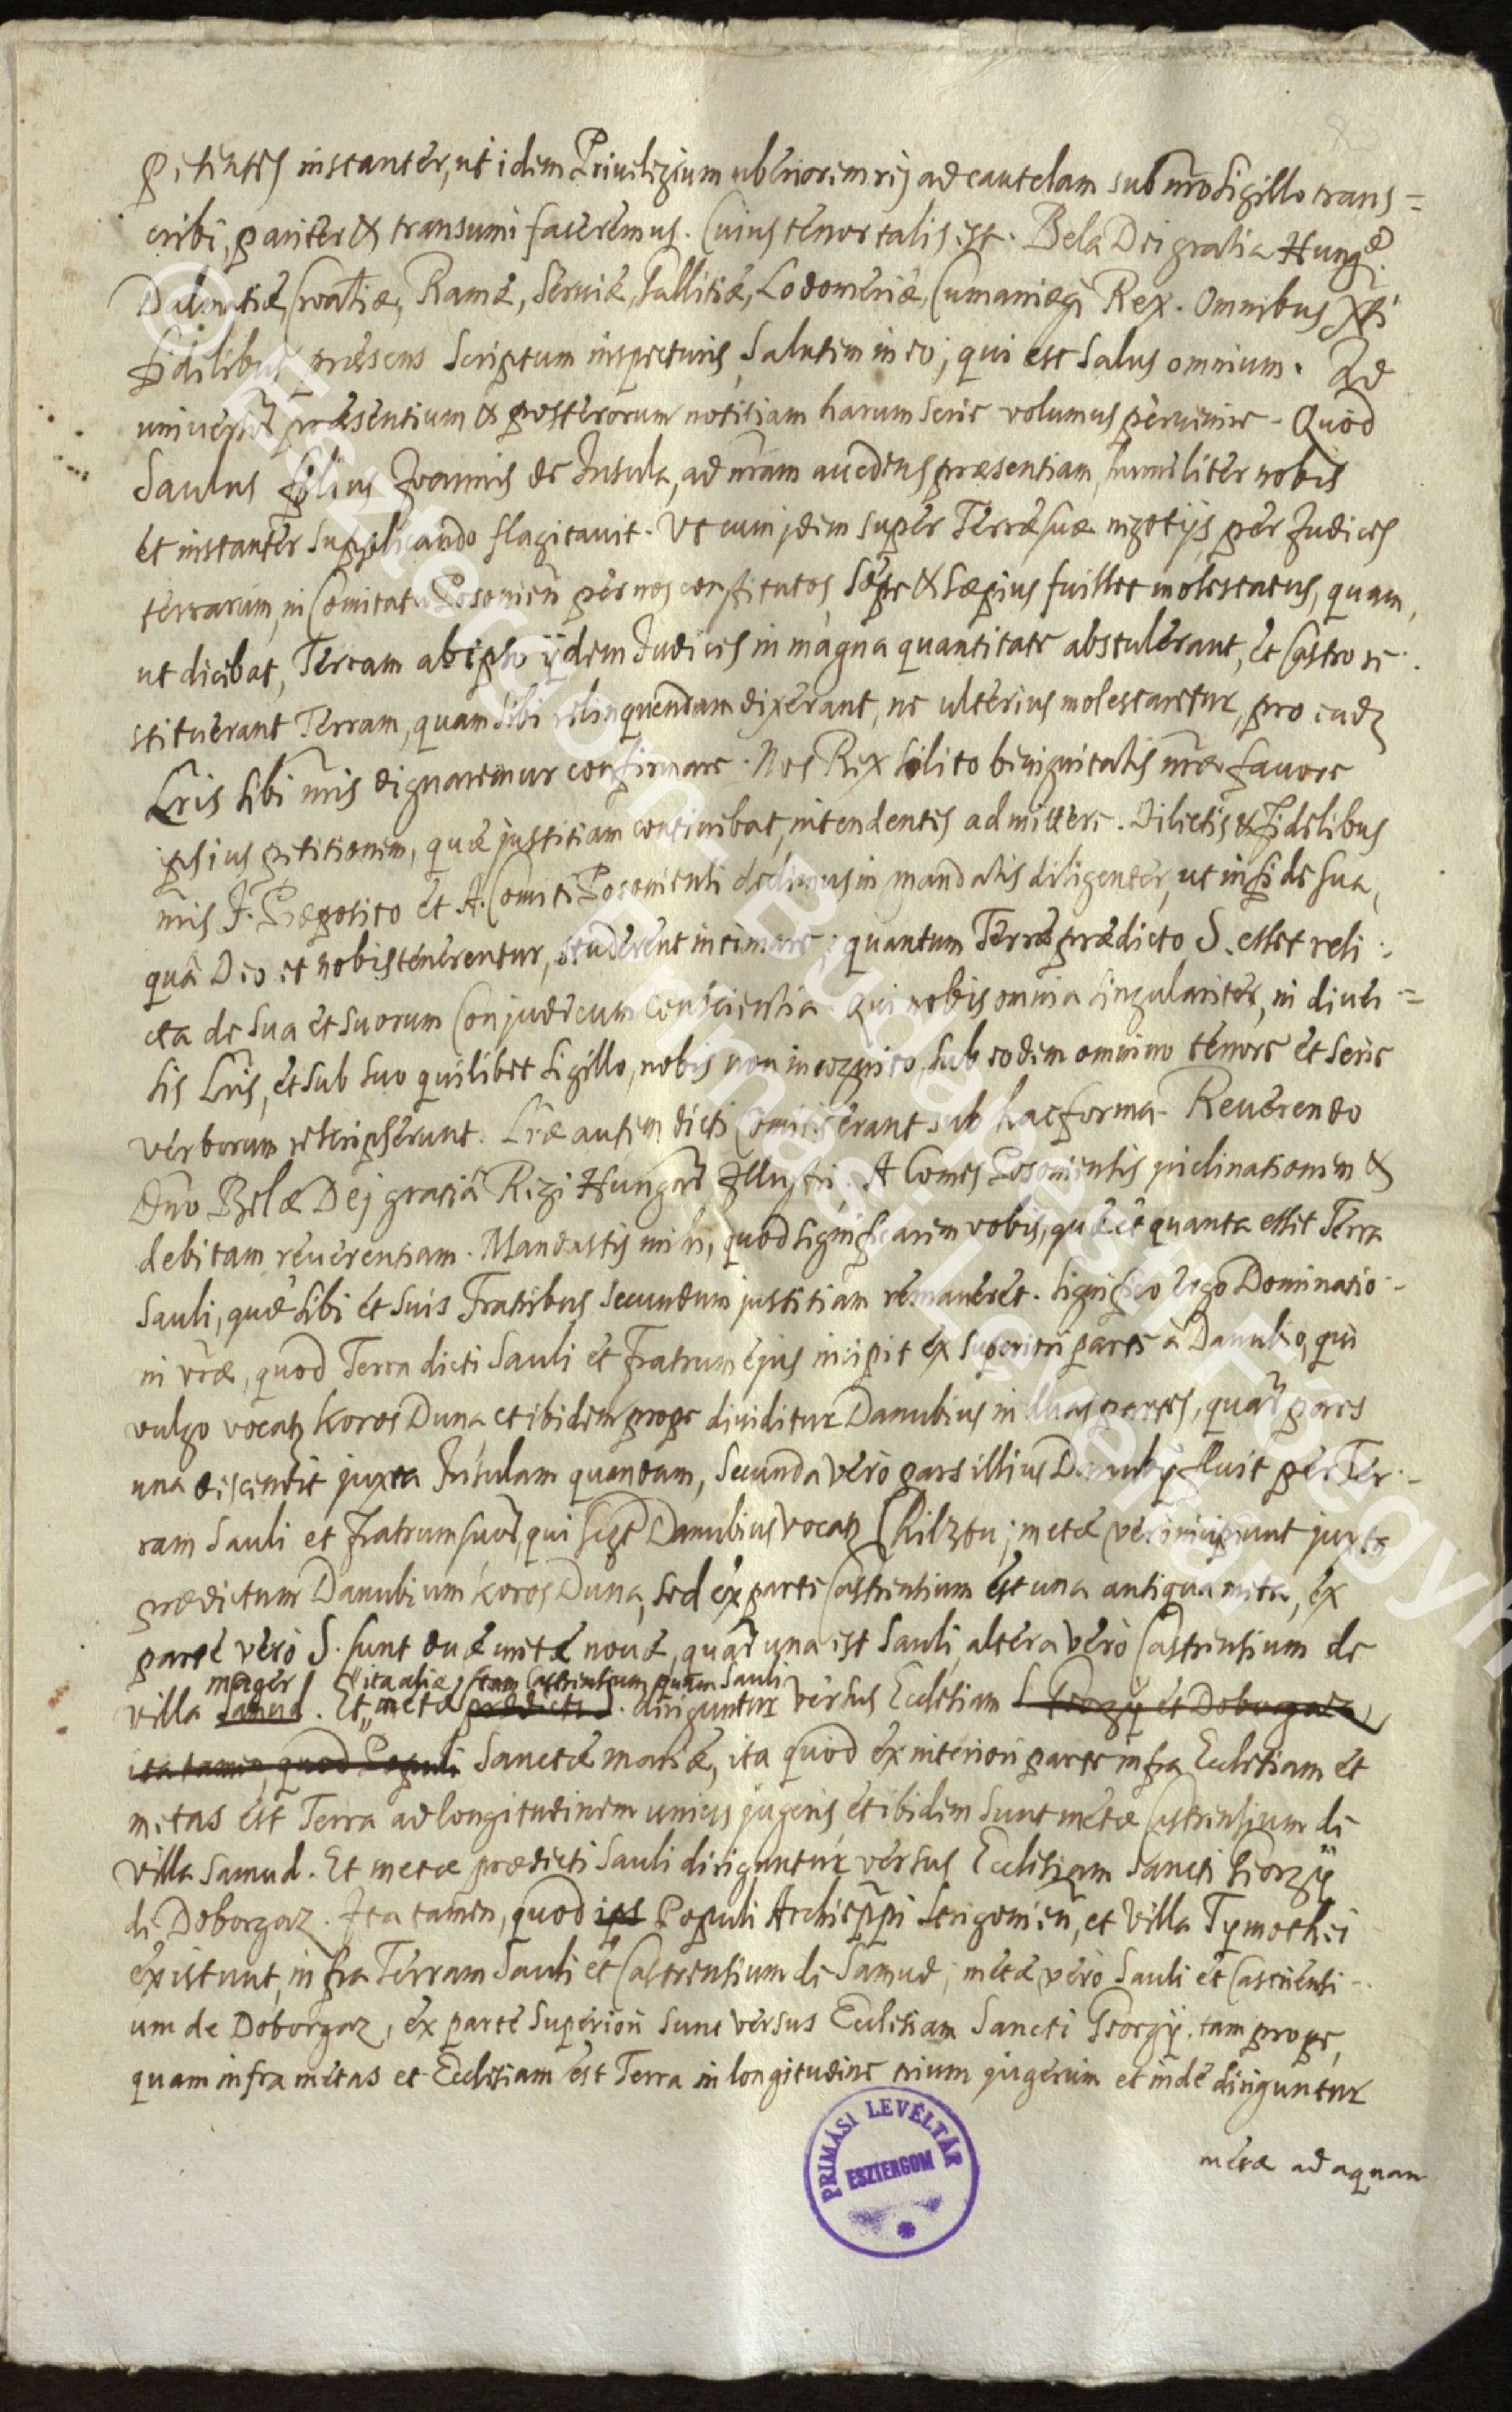 petentes instanter, ut idem Priuilegium uberiorem rej ad cautelam sub nro Sigillo trans=
cribi, pariter & transumi faceremus. Cuius tenor talis est. Bela Dei gratia Hung.
Dalmatiæ, Croatiæ, Ramæ, Seruiæ, Gallitiæ, Lodomeriæ, Cumaniæq; Rex. Omnibus Xti
fidelibus præsens Scriptum inspecturis, Salutem in eo, qui est Salus omnium. Ad
universor præsentium & posterorum notitiam harum serie volumus pervenire. Quod
Saulus filius Joannis de Insula, ad nram accedens præsentiam, humiliter nobis
et instanter supplicando flagitauit. Ut cum jdem super Terræ suæ negotijs, per Judices
terrarum, in Comitatu Posonien per nos constitutos, sæpe & sæpius fuisset molestatus, quam,
ut dicebat, Terram ab ipso ijdem Judices in magna quantitate abstulerant, et Castro re-
stituerant Terram, quam sibi relinquendam dixerant, ne ulterius molestaretur, pro eadz
Lris sibi nris dignaremur confirmare. Nos Rex solito benignitatis nræ fauore
ipsius petitionem, quæ justitiam continebat, intendentes admittere. Dilectis & Fidelibus
nris J. Præposito et A. Comiti Posoniensi dedimus in mandatis diligenter, ut in fide sua,
quâ Deo et nobis tenerentur, studerent intimare; quantum Terræ prædicto S. esset reli-
cta de sua et suorum Conjudicum Conscientia. Qui nobis omnia singulariter, in diuer=
sis Lris, et sub suo quilibet Sigillo, nobis non incognito, sub eodem omnino tenore et serie
verborum rescripserunt. Lræ autem dicti Comitis erant sub hac forma. Reuerendo
Dno Belæ Dej gratiâ Regi Hungar Jllustri. A Comes Posoniensis inclinationem &
debitam reuerentiam. Mandastis mihi, quod significarem vobis, quæ et quanta esset Terra
Sauli, quæ sibi et suis Fratribus secundum justitiam remaneret. Significo ergo Dominatio-
ni vræ, quod Terra dicti Sauli et Fratrum ejus incipit ex superiori parte à Danubio, qui
vulgo vocatz Koros Duna et ibidem prope diuiditur Danubius in duas partes, quar pars
una discendit juxta Insulam quandam, Secunda verò pars illius Danubij fluit per Ter-
ram Sauli et Fratrum suor, qui scilt Danubius vocatz Chilzou; metæ verò incipiunt juxta
prædictum Danubium Koros Duna, sed ex parte Castrensium est una antiqua meta, ex
parte verò S. sunt duæ metæ nouæ, quar una est Sauli, altera verò Castrensium de
mager ita aliæ tam Castrensium quam Sauli
villa Samud. Et metæ prædicti S. diriguntur versus Ecclesiam S Georgij et Doborgaz,
ita tamen, quod Populi Sanctæ mariæ, ita quod ex interiori parte infra Ecclesiam et
metas est Terra ad longitudinem unius jugeris et ibidem sunt metæ Castrensium de
villa Samud. Et metæ prædicti Sauli diriguntur versus Ecclesiam Sancti Georgij
de Doborgaz. Ita tamen, quod ips Populi Archieppi Strigonien, et villa Tymothei
existunt, infra Terram Sauli et Castrensium de Samud; metæ verò Sauli et Castrensi-
um de Doborgaz, ex parte superiori sunt versus Ecclesiam Sancti Georgij. tam prope,
quam infra metas et Ecclesiam est Terra in longitudine trium jugerum et inde diriguntur
metæ ad aquam
PRIMÁSI LEVÉLTÁR
ESZTERGOM